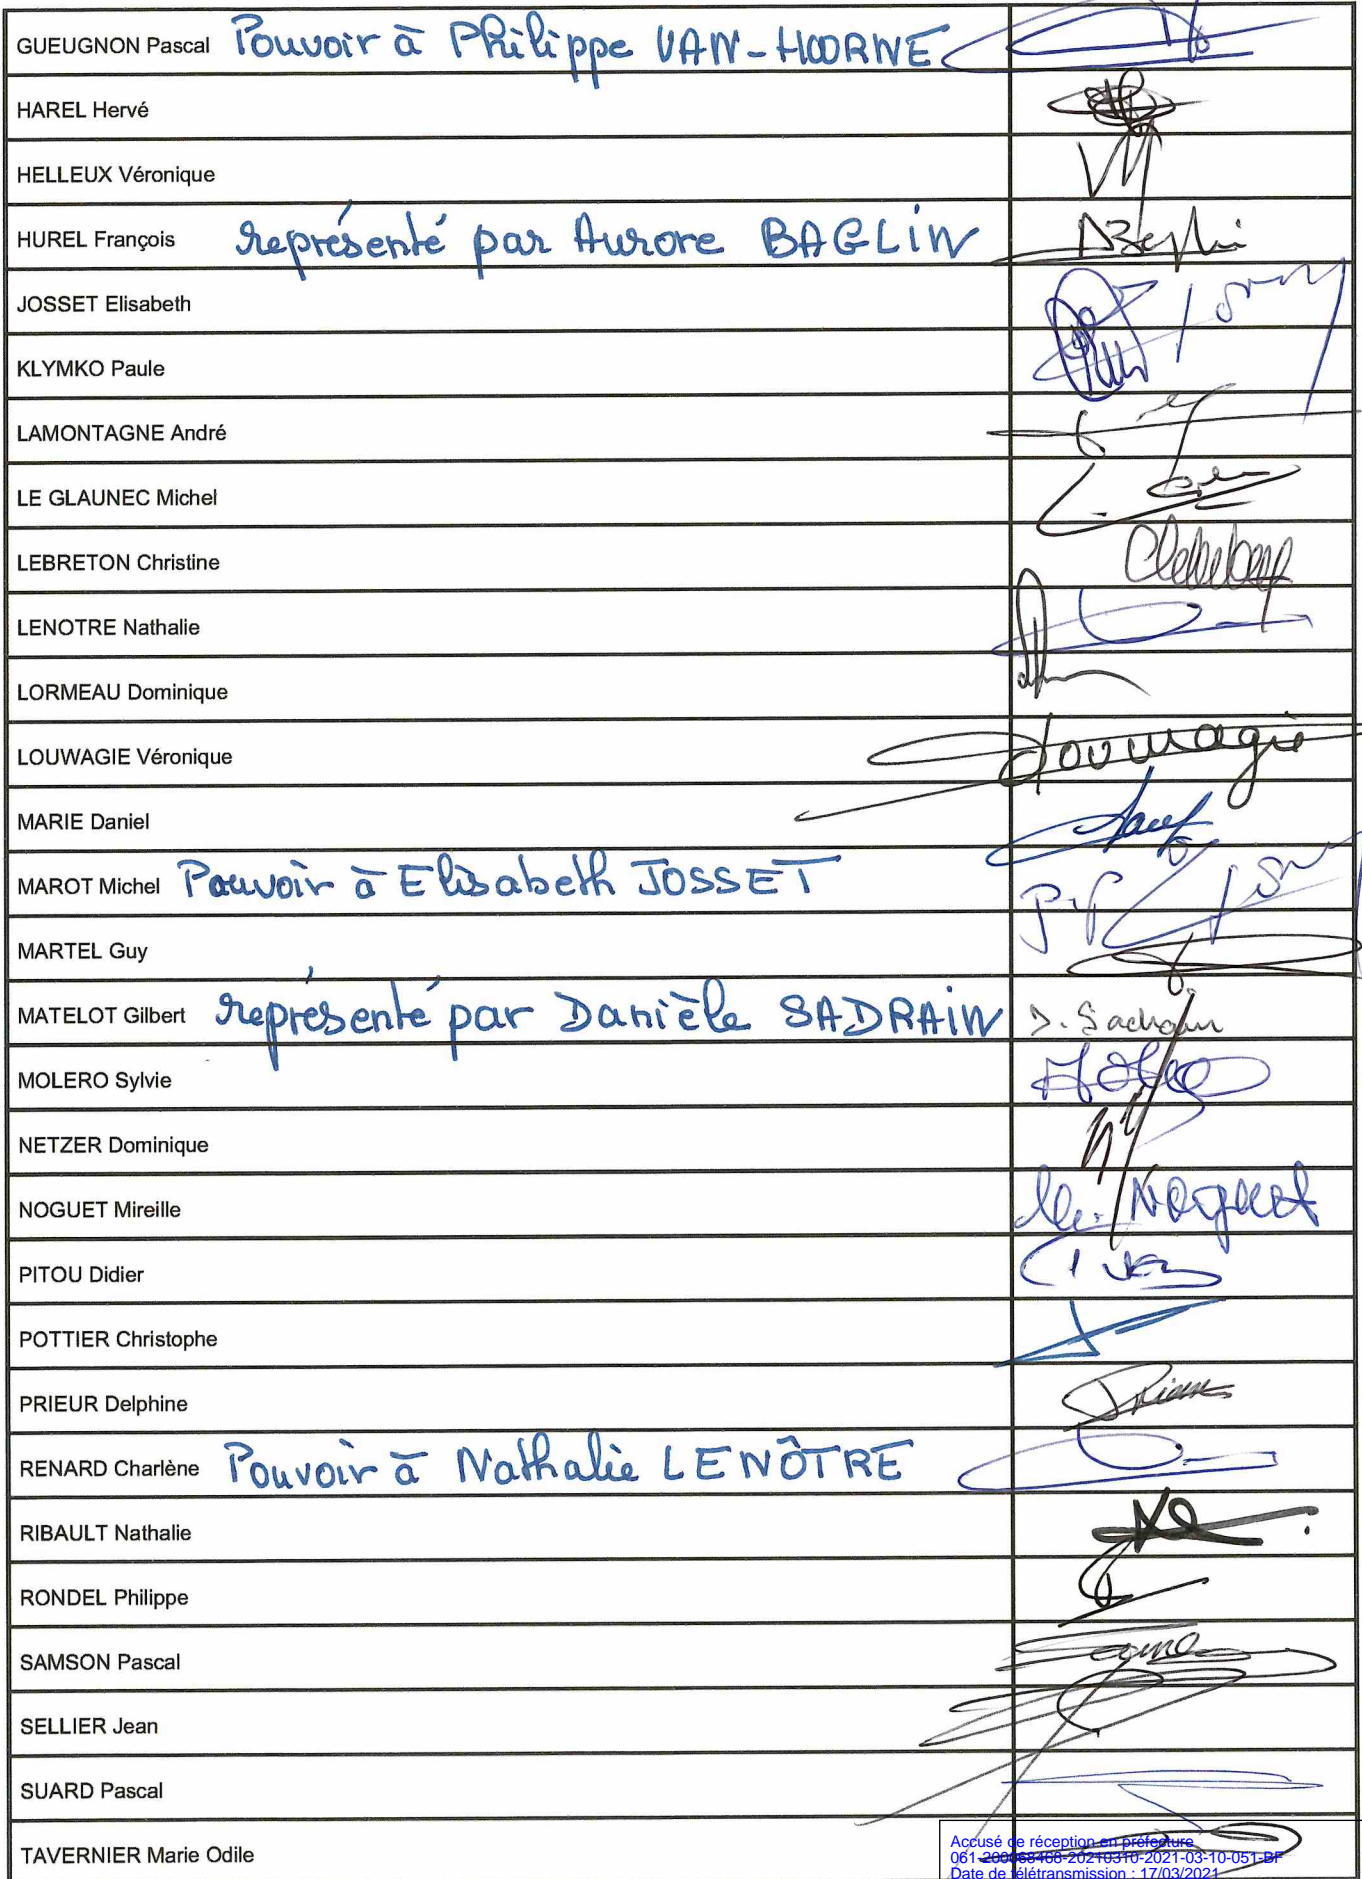 GUEUGNON Pascal Pouvoir à Philippe VAN-HOORNE
HAREL Hervé
HELLEUX Véronique
HUREL François représenté par Aurore BAGLIN
JOSSET Elisabeth
KLYMKO Paule
LAMONTAGNE André
LE GLAUNEC Michel
LEBRETON Christine
LENOTRE Nathalie
LORMEAU Dominique
LOUWAGIE Véronique Louwagie
MARIE Daniel
MAROT Michel Pouvoir à Elisabeth JOSSET
MARTEL Guy
MATELOT Gilbert représenté par Danièle SADRAIN D. Sadrain
MOLERO Sylvie
NETZER Dominique
NOGUET Mireille M. Noguet
PITOU Didier
POTTIER Christophe
PRIEUR Delphine
RENARD Charlène Pouvoir à Nathalie LENÔTRE
RIBAULT Nathalie
RONDEL Philippe
SAMSON Pascal
SELLIER Jean
SUARD Pascal
TAVERNIER Marie Odile
Accusé de réception en préfecture
061-200068468-20210310-2021-03-10-051-BF
Date de télétransmission : 17/03/2021